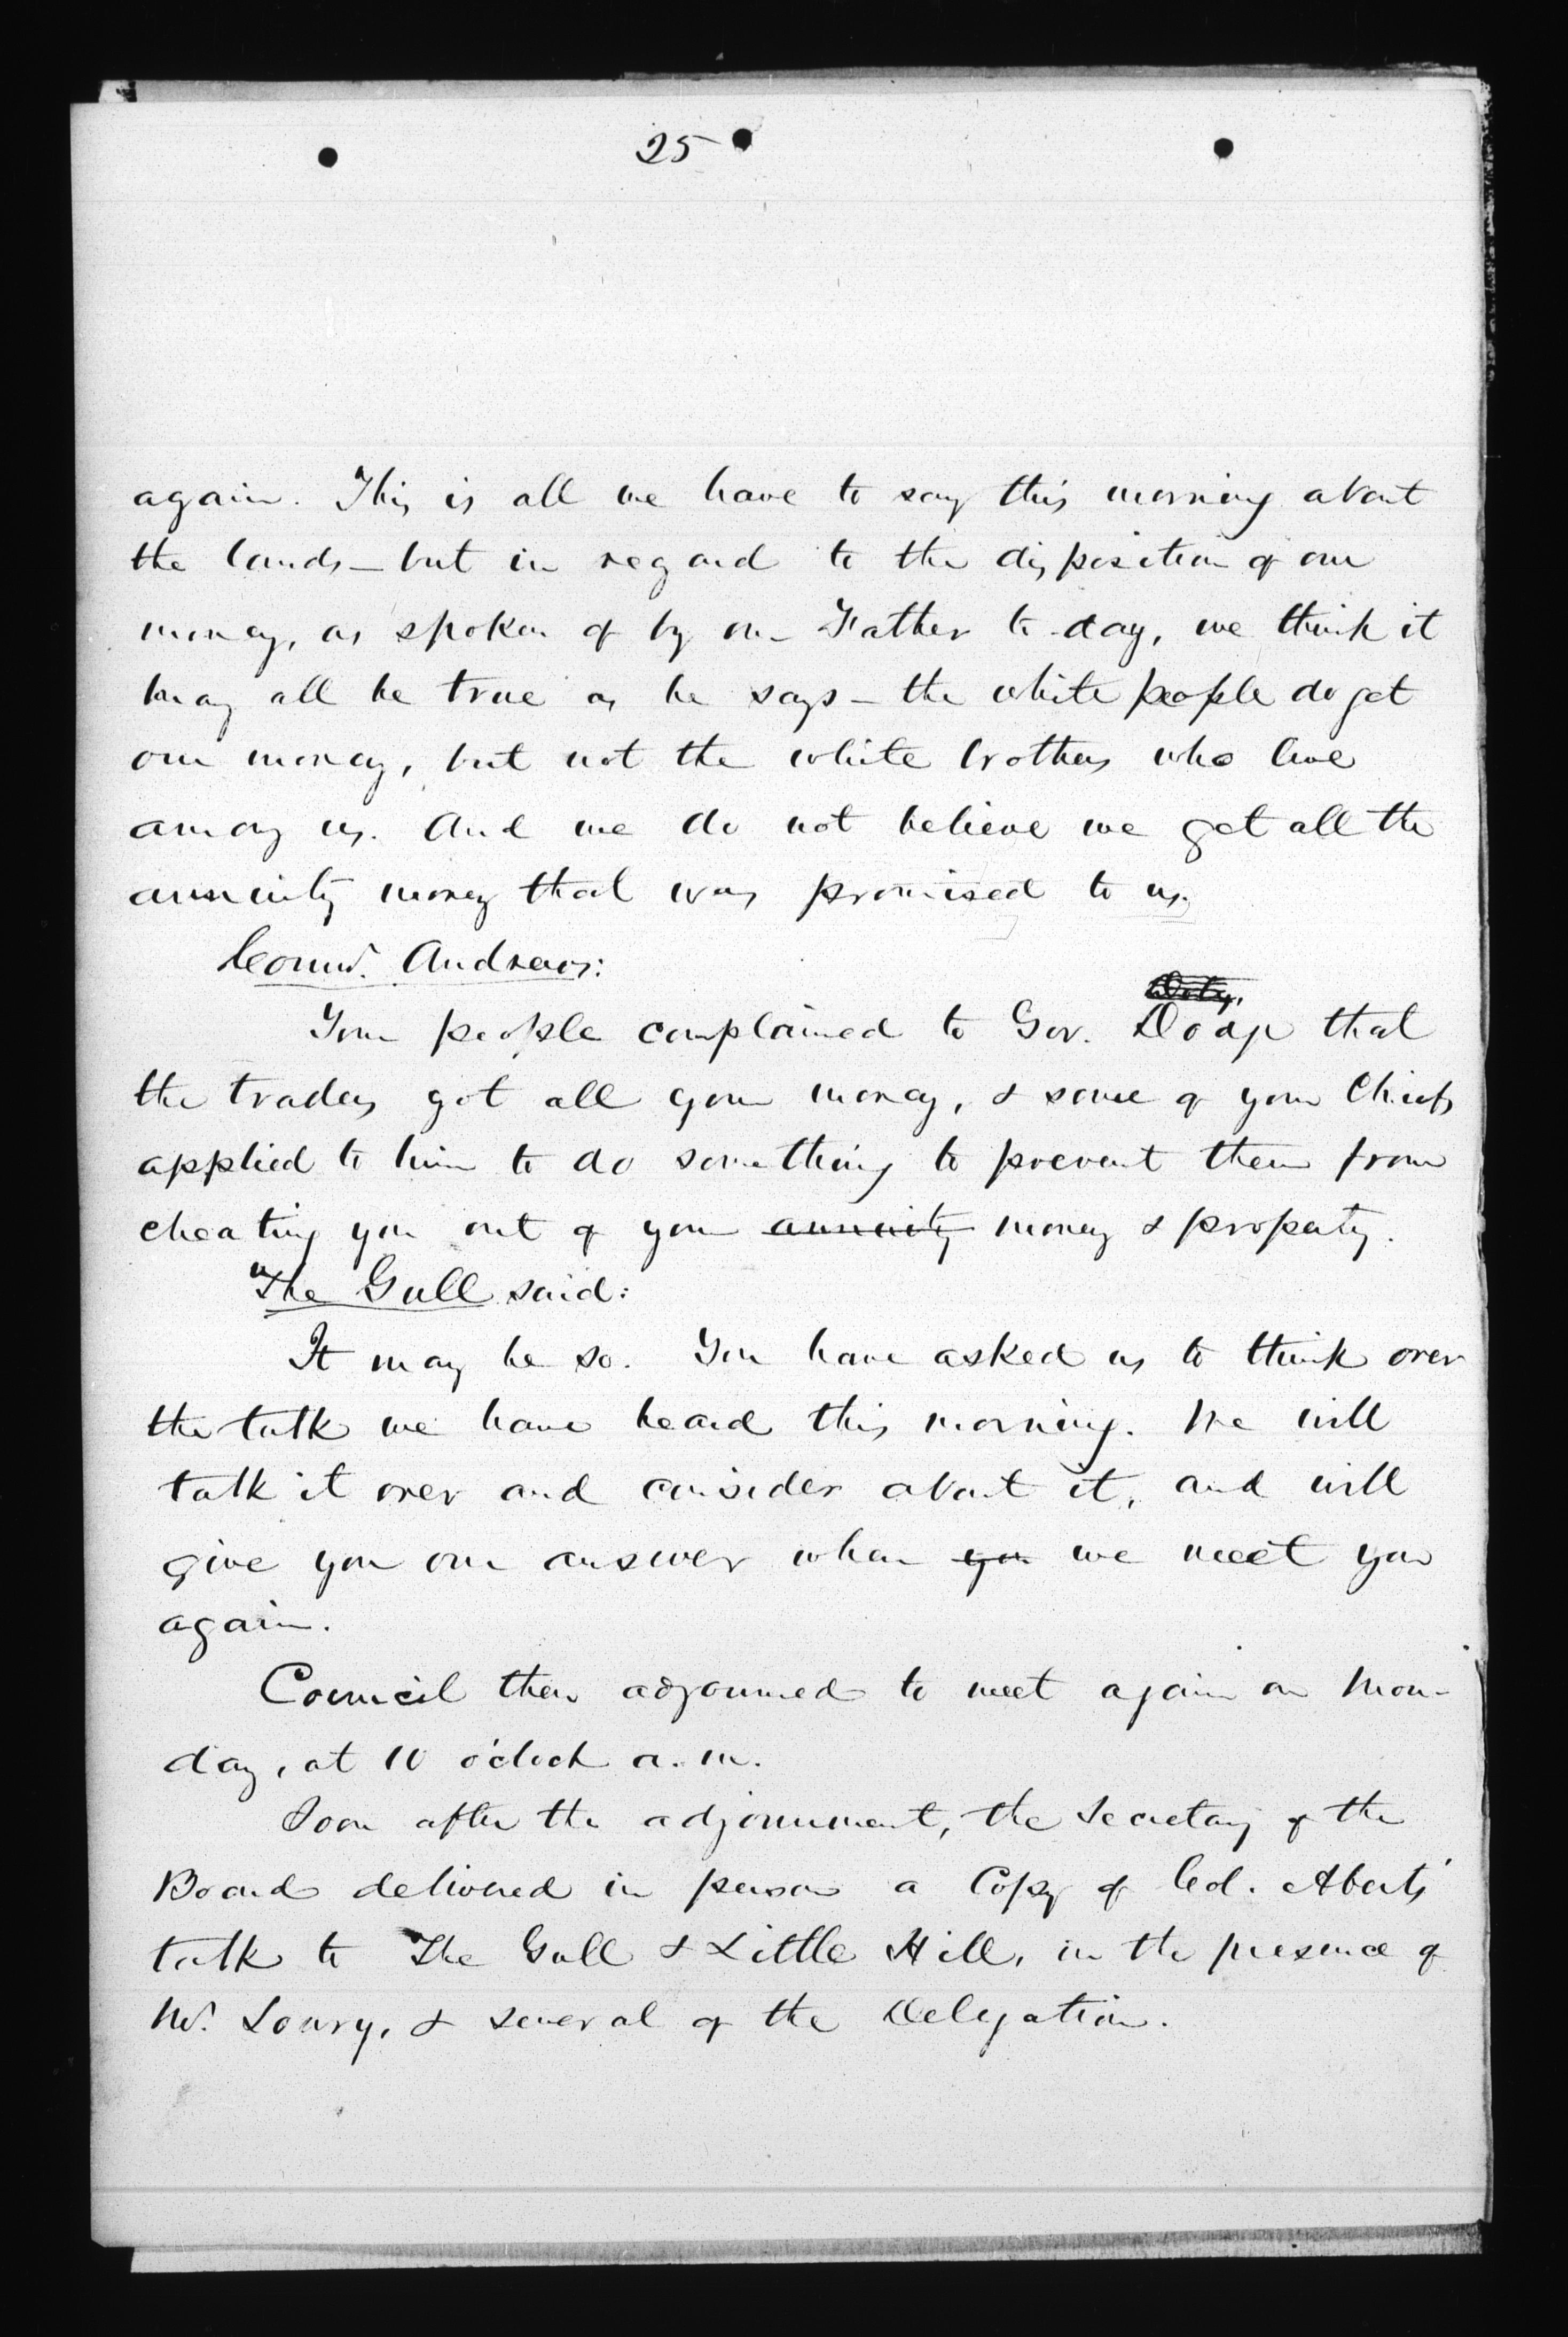 25
again. This is all we have to say this morning about
the lands — but in regard to the disposition of our
money, as spoken of by our Father to-day, we think it
may all be true as he says — the white people do get
our money, but not the white brothers who live
among us. And we do not believe we get all the
annuity money that was promised to us.
Commr. Andrews:
Doty,
Your people complained to Gov. Dodge that
the traders got all your money, & some of your Chiefs
applied to him to do something to prevent them from
cheating you out of your annuity money & property.
The Gull said:
It may be so. You have asked us to think over
the talk we have heard this morning. We will
talk it over and consider about it, and will
give you our answer when you we meet you
again.
Council then adjourned to meet again on Mon-
day, at 10 o'clock a.m.
Soon after the adjournment, the Secretary of the
Board delivered in person a Copy of Col. Abert's
talk to The Gull & Little Hill, in the presence of
Mr. Lowry, & several of the Delegation.